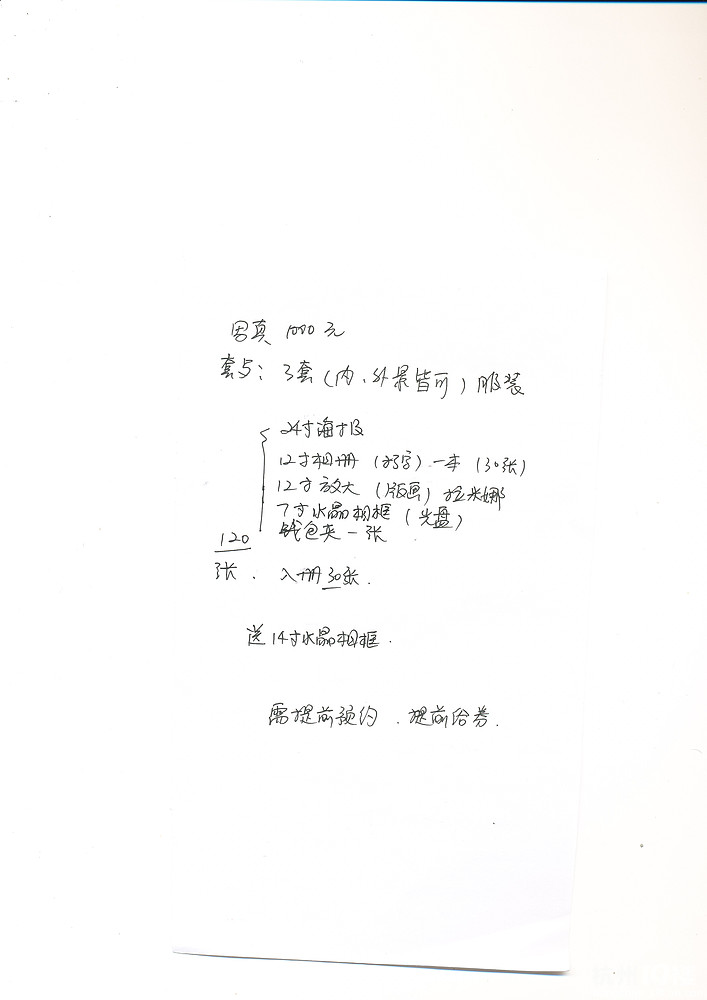 写真 1000元
套写: 3套(内、外景皆可)服装
24寸海报
12寸相册 一本 (30张)
12寸放大 (版画) 拉米娜
7寸水晶相框 (光盘)
钱包夹一张
120
张. 入册30张.
送14寸水晶相框.
需提前预约. 提前给券.